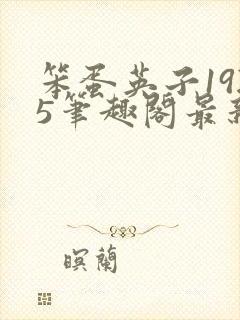 笨蛋英子19
5筆趣閣最
暝蘭